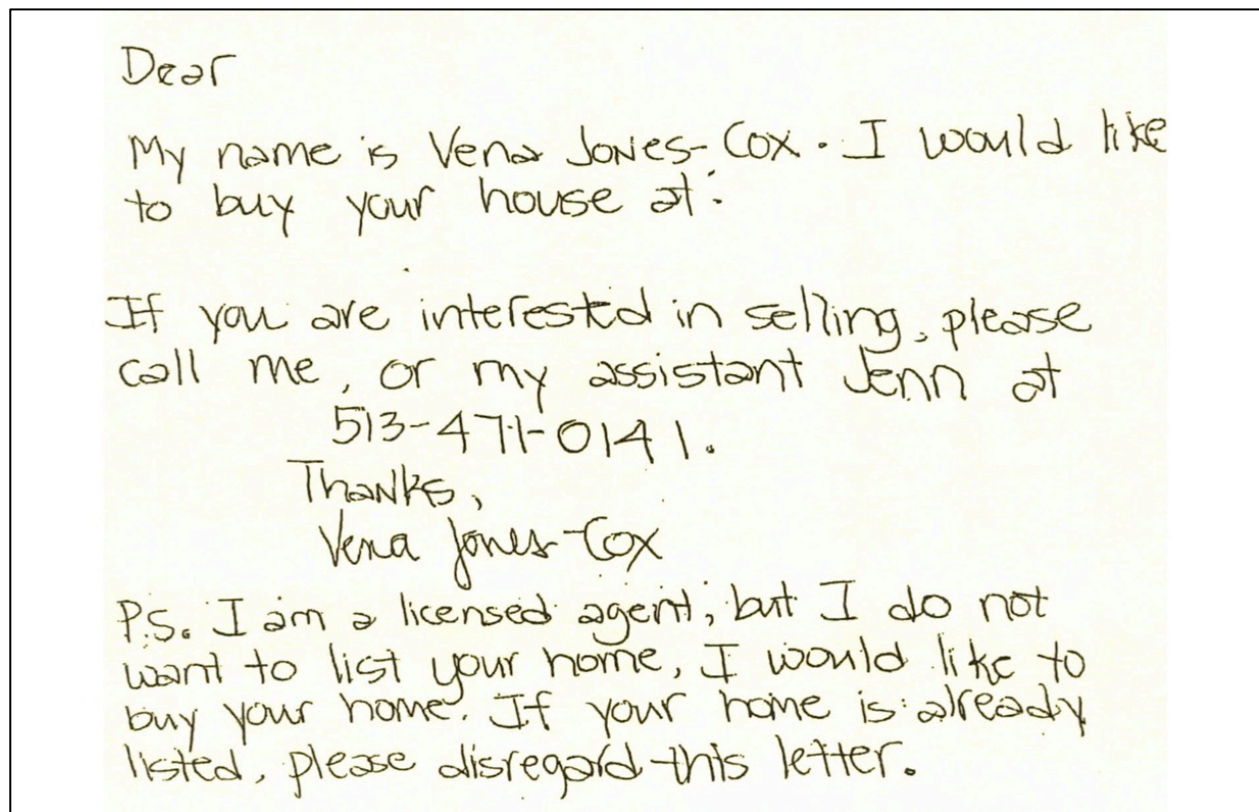 Dear
My name is Vena Jones-Cox. I would like
to buy your house at:
If you are interested in selling, please
call me, or my assistant Jenn at
513-471-0141.
Thanks,
Vena Jones-Cox
P.S. I am a licensed agent, but I do not
want to list your home, I would like to
buy your home. If your home is already
listed, please disregard this letter.